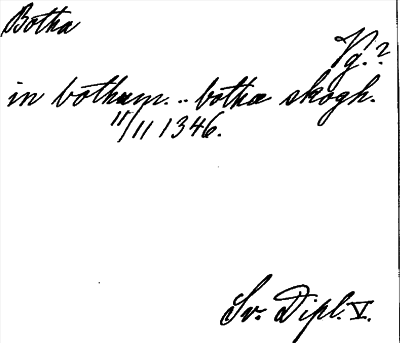 Botha
Vg.?
in botham. .. botha skogh.
11/11 1346.
Sv. Dipl. V.